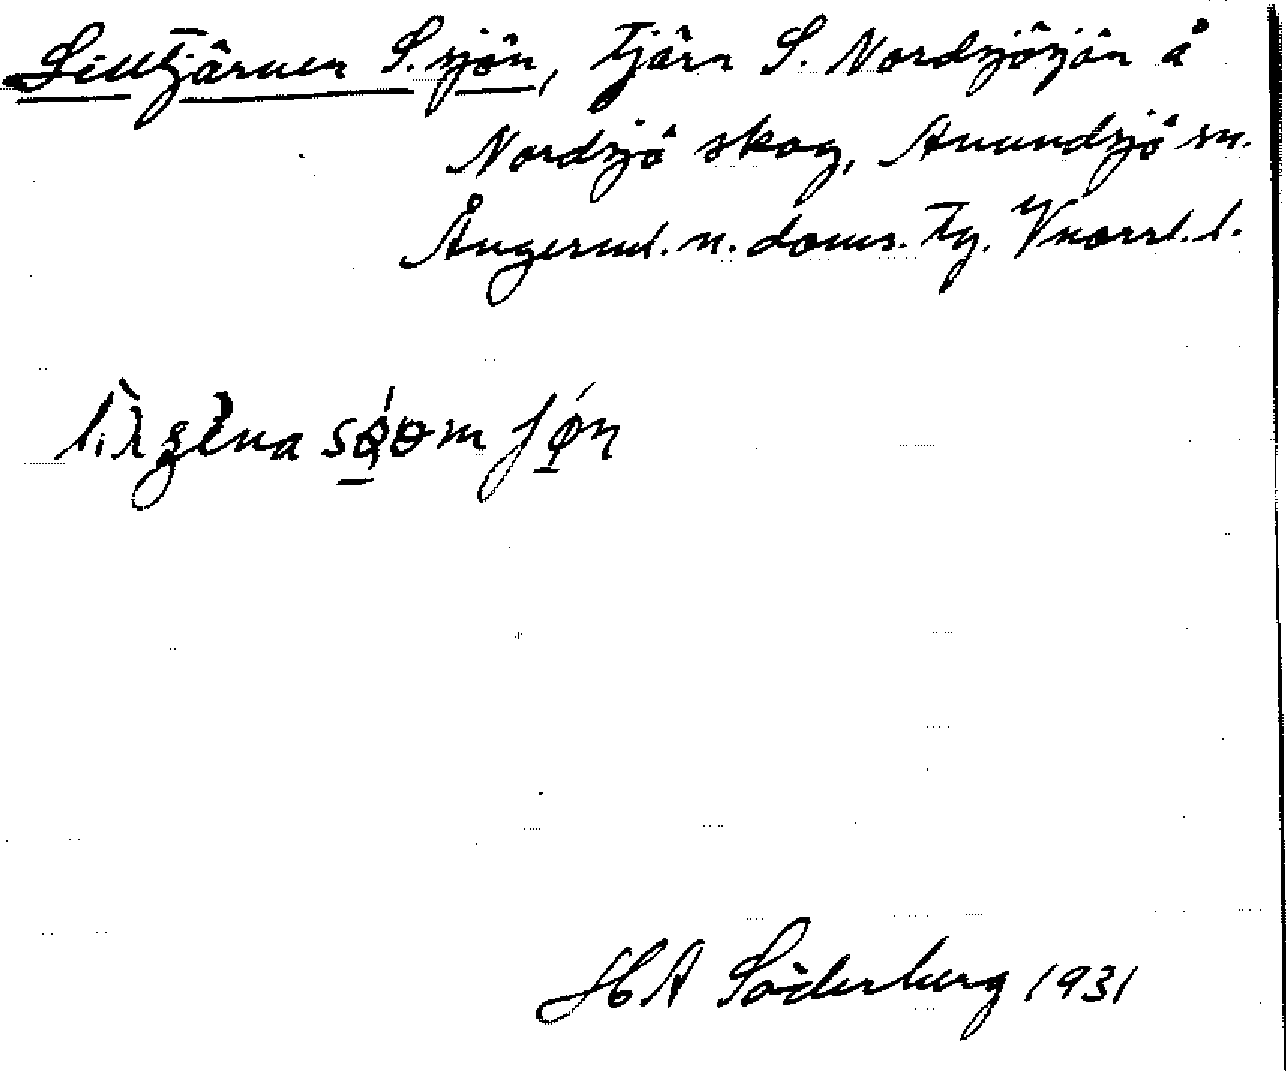 Lilltjärnen S. sjön, tjärn S. Nordsjösjön å
Nordsjö skog, Anundsjö sn.
Ångerml. n. doms. tg. Vnorrl. l.
HA Söderberg 1931